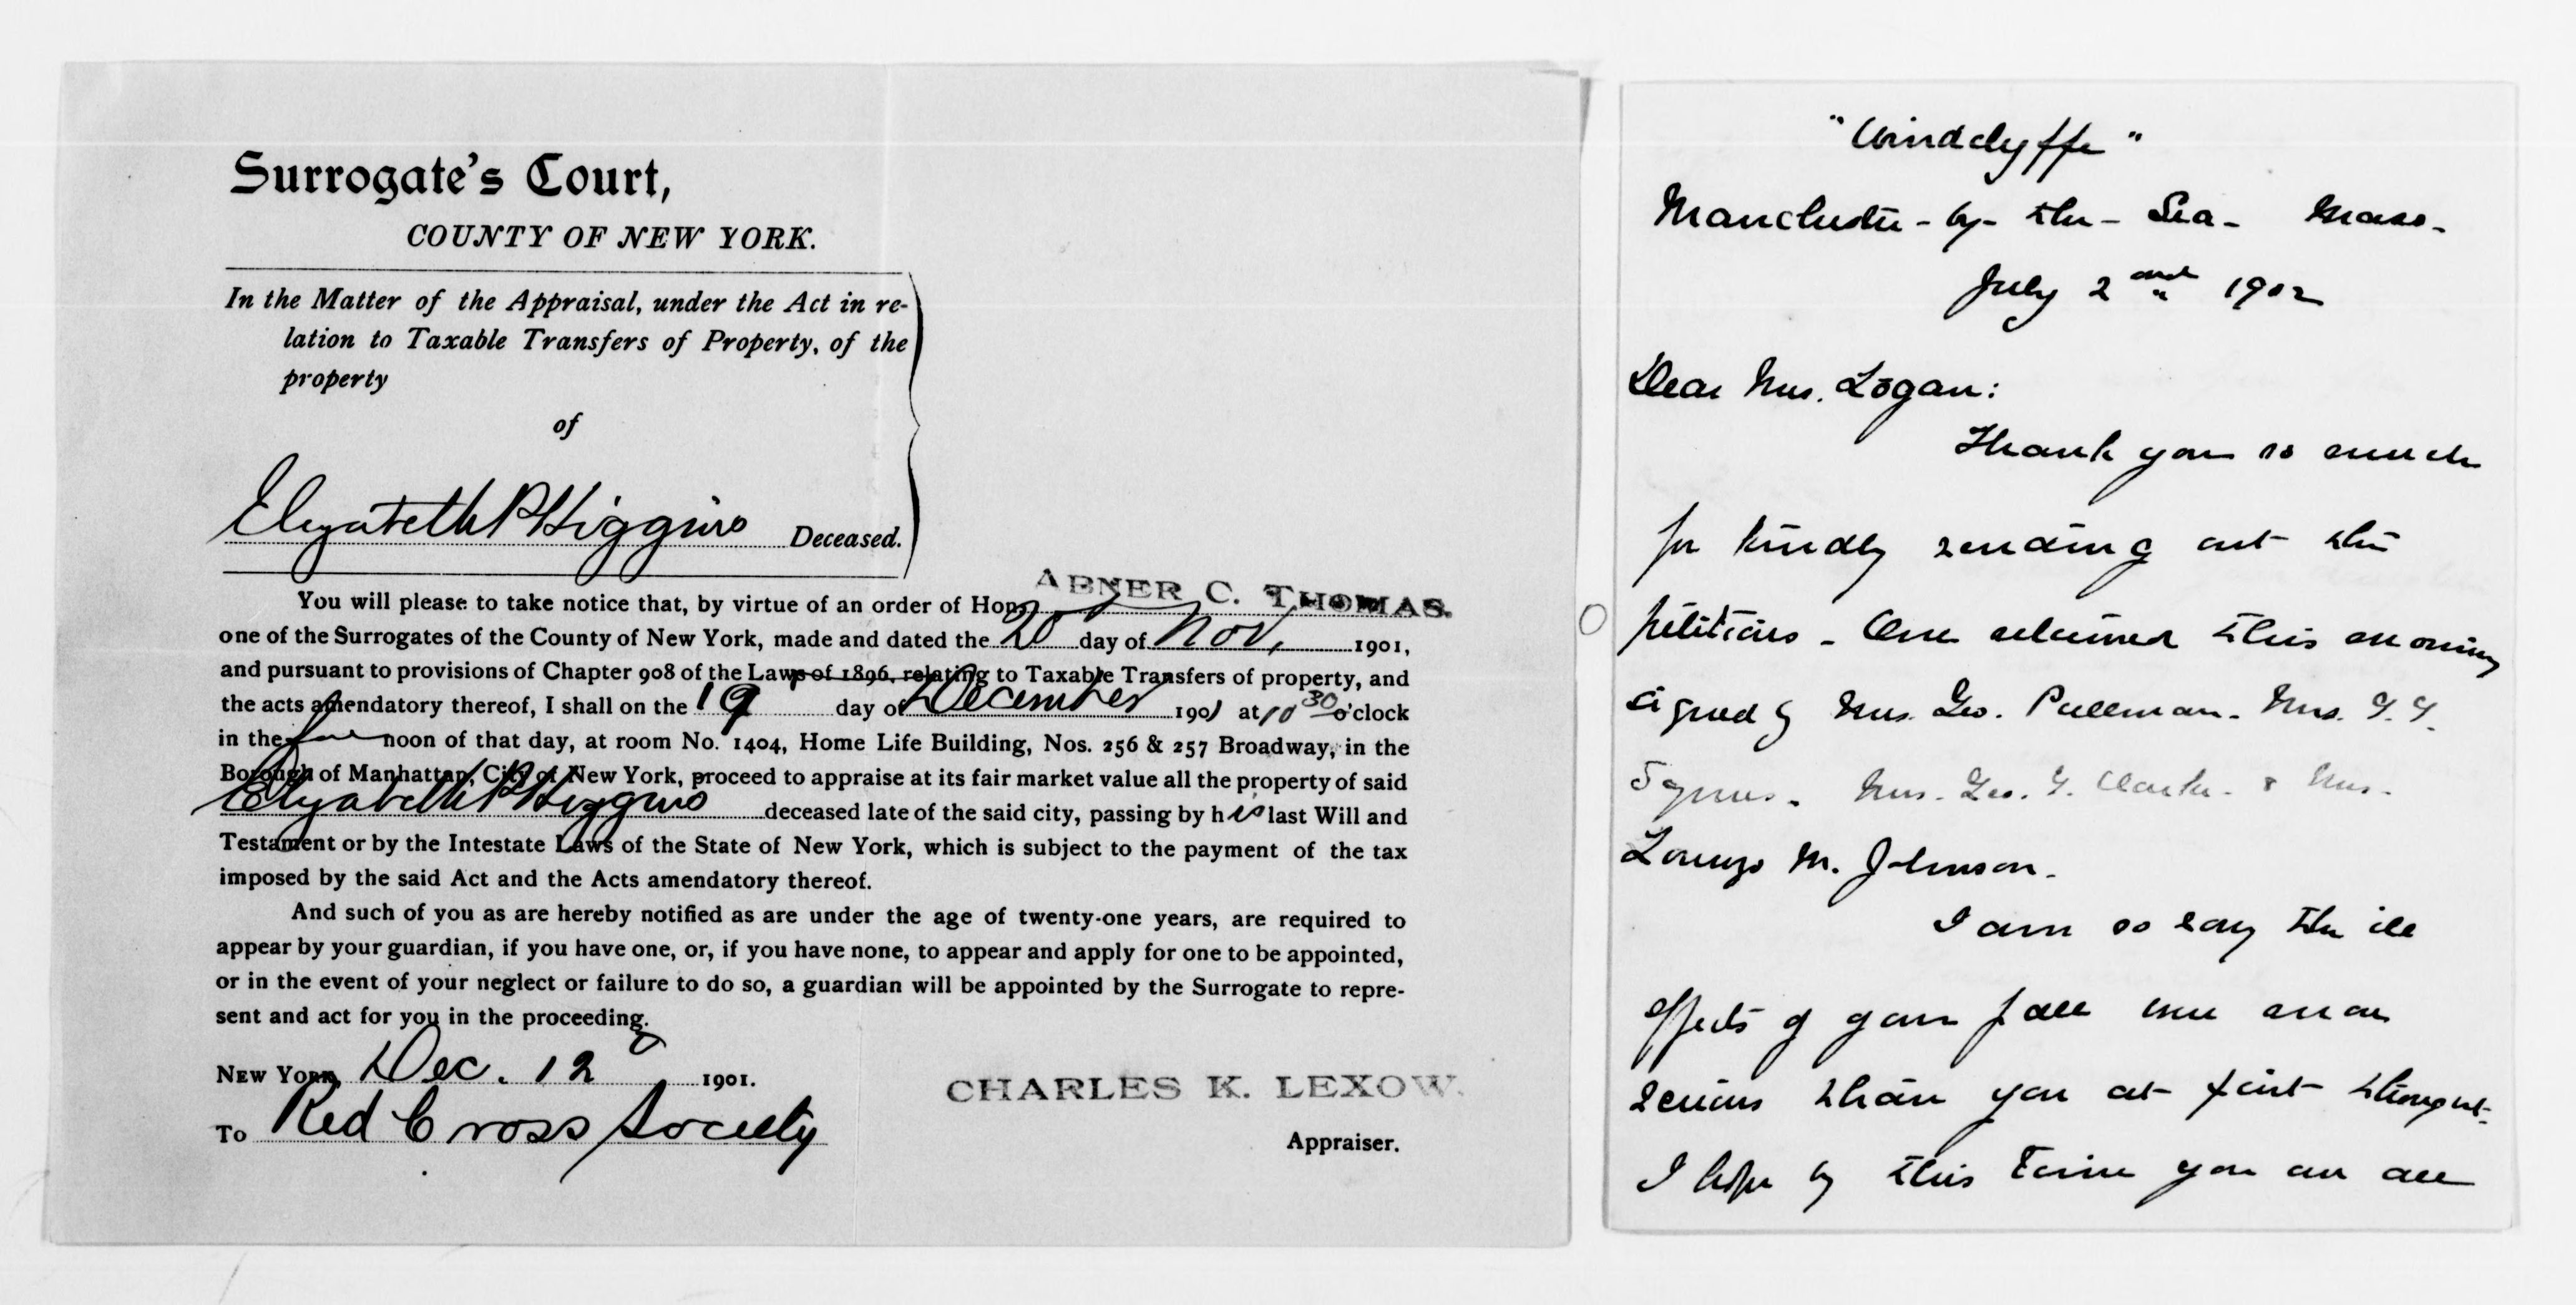 Surrogate's Court,
COUNTY OF NEW YORK.
In the Matter of the Appraisal, under the Act in re-
lation to Taxable Transfers of Property, of the
property
of
Elizabeth P Higgins Deceased.
ABNER C. THOMAS.
You will please to take notice that, by virtue of an order of Hon.
one of the Surrogates of the County of New York, made and dated the 20 day of Nov, 1901,
and pursuant to provisions of Chapter 908 of the Laws of 1896, relating to Taxable Transfers of property, and
the acts amendatory thereof, I shall on the 19 day of December 1901 at 10 30 o'clock
in the fore noon of that day, at room No. 1404, Home Life Building, Nos. 256 & 257 Broadway, in the
Borough of Manhattan, City of New York, proceed to appraise at its fair market value all the property of said
Elizabeth P Higgins deceased late of the said city, passing by h is last Will and
Testament or by the Intestate Laws of the State of New York, which is subject to the payment of the tax
imposed by the said Act and the Acts amendatory thereof.
And such of you as are hereby notified as are under the age of twenty-one years, are required to
appear by your guardian, if you have one, or, if you have none, to appear and apply for one to be appointed,
or in the event of your neglect or failure to do so, a guardian will be appointed by the Surrogate to repre-
sent and act for you in the proceeding.
NEW YORK, Dec. 12 1901.
To Red Cross Society
CHARLES K. LEXOW.
Appraiser.
"Windclyffe"
Manchester-by-the-Sea- Mass.
July 2nd 1902
Dear Mrs. Logan:
Thank you so much
for kindly sending out the
petitions - One returned this morning
signed by Mrs. Geo. Pullman - Mrs.
Mrs. Geo. Clarke - & Mrs.
Lorenzo M. Johnson.
I am so sorry the ill
effects of your fall were more
serious than you at first thought-
I hope by this time you are all